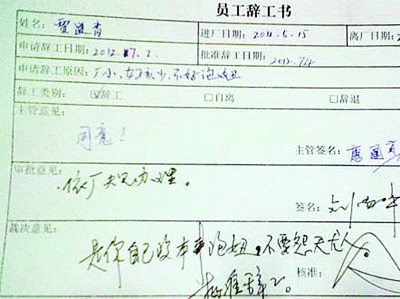 员工辞工书
姓名: 进厂日期: 2011.6.15 离厂日期: 2
申请辞工日期: 2012.7.2. 批准辞工日期: 2012.7.4
申请辞工原因: 厂小,女孩少,不好泡妞
辞工类别: ☑辞工 □自离 □辞退
主管意见:
同意!
主管签名:
审批意见:
依厂规办理。
签名:
裁决意见:
是你自己没本事泡妞,不要怨天尤人。
批准辞工。 核准: